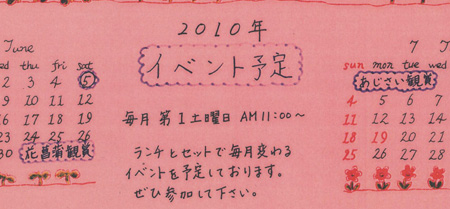 2010年
イベント予定
毎月 第1土曜日 AM11:00～
ランチとセットで毎月変わる
イベントを予定しております。
ぜひ参加して下さい。
June
ed thu fri sat
2 3 4 5
9 10 11 12
16 17 18 19
23 24 25 26
30 花菖蒲観賞
7
sun mon tue wed
あじさい観賞
4 5 6 7
11 12 13
18 19 20
25 26 27 28